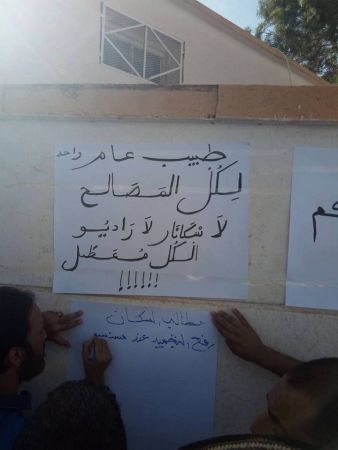 طبيب عام واحد
لِكُلّ المَصَالح
لاَ سْكَانَار لاَ رَاديُو
الكُل مُعَطّل
!!!!!!
مطالب السكان
رفع التجميد عند مستشفى
كم